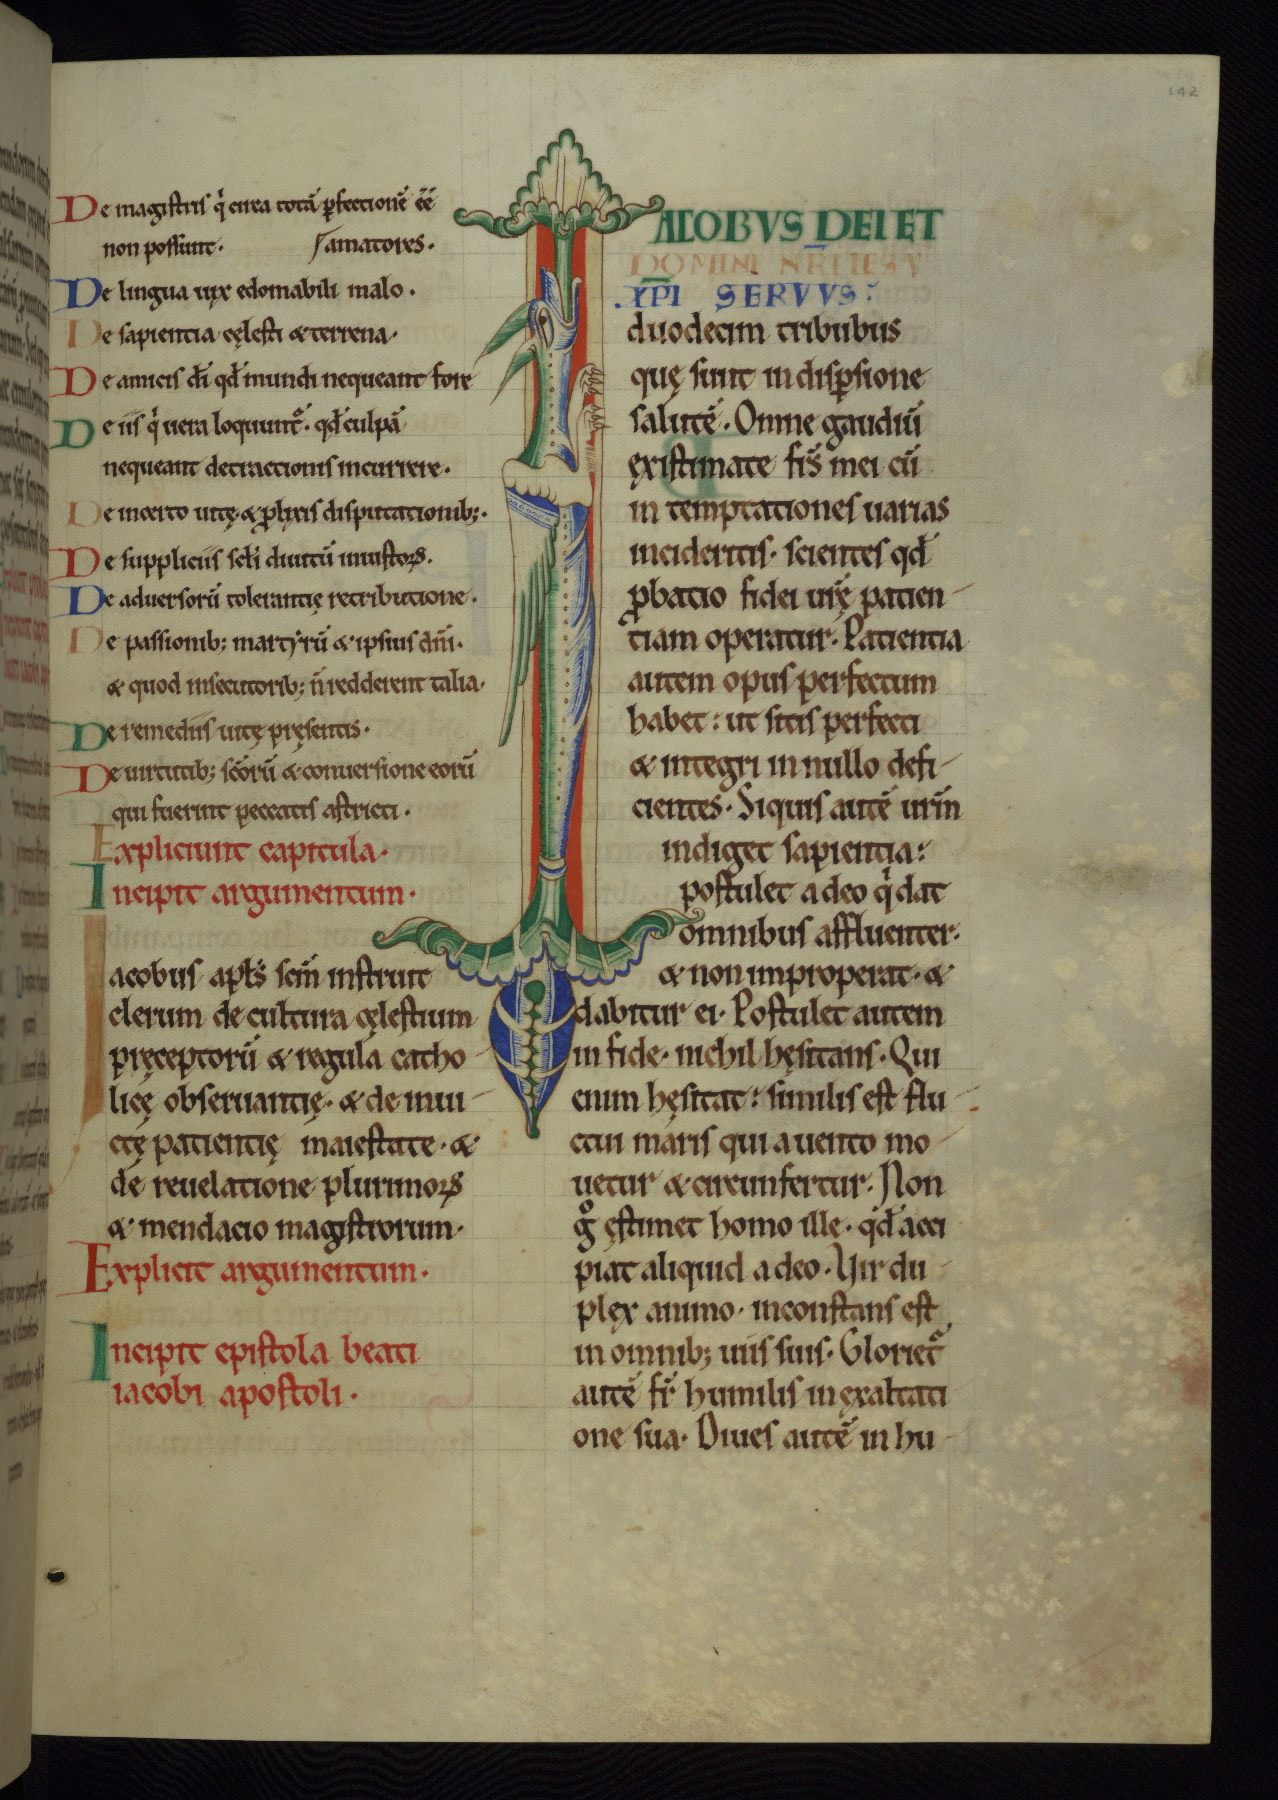 142
De magistris q̇ circa totā ꝑfectionē ēē
non possunt· ſamatores·
De lingua uix edomabili malo·
De sapientia cęlesti & terrena·
De amicis dī qd̄ mundi nequeant fore
De iis q̇ uera loquunt᷑· qd̄ culpā
nequeant detractionis incurrere·
De incerto uitę & ꝓlixis disputationib;·
De suppliciis sclī diuitū iniustoꝝ·
De aduersorū tolerantię retributione·
De passionib; martyrū & ipsius dn̄i·
& quod insecutorib; n̄ redderent talia·
De remediis uitę pręsentis·
De uirtutib; scōrū & conuersione eorū
qui fuerint peccatis astricti·
Expliciunt capitula·
Incipit argumentum·
Iacobus apl̄s scm̄ instruit
clerum de cultura cęlestium
pręceptorū & regula catho
licę obseruantię· & de inui
ctę patientię maiestate· &
de reuelatione plurimoꝝ
& mendacio magistrorum·
Explicit argumentum·
Incipit epistola beati
iacobi apostoli·
IACOBVS DEI ET
DOMINI NR̄I IESV
XP̄I SERVVS:
duodecim tribubus
quę sunt in disꝑsione
salutē· Omne gaudiū
exıstimate fr̄s mei cū
in temptationes uarias
incideritis· scientes qd̄
ꝓbatio fidei ur̄ę patien
tiam operatur· Patientia
autem opus perfectum
habet: ut sitis perfecti
& integri in nullo defi
cientes· Siquis autē ur̄m
indiget sapientia:
postulet a deo q̇ dat
omnibus affluenter·
& non improperat· &
dabitur ei· Postulet autem
in fide· nichil hęsitans· Qui
enim hęsitat: similis est flu
ctui maris qui a uento mo
uetur & circunfertur· Non
gͦ ęstimet homo ille· qd̄ acci
piat aliquid a deo· Vir du
plex animo· inconstans est
in omnib; uiis suis· Gloriet᷑
autē fr̄ humilis in exaltati
one sua· Diues autē in hu